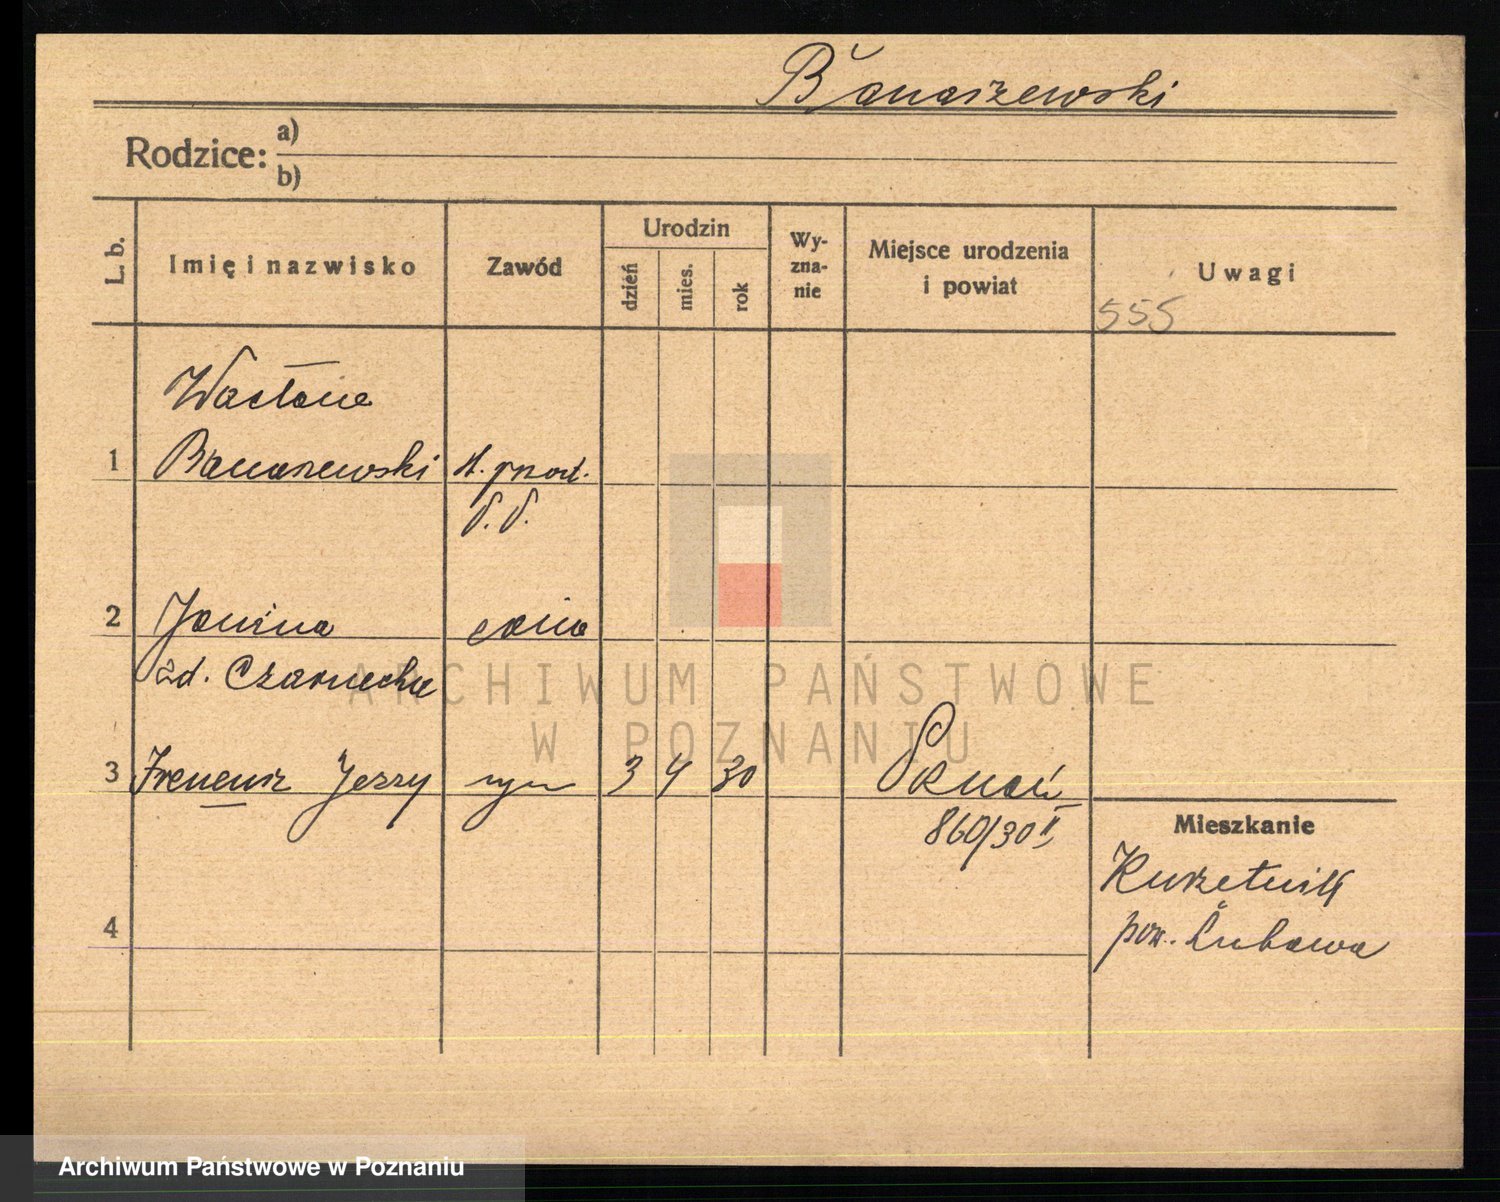 Banaszewski
Rodzice: a)
b)
L. b.
Imię i nazwisko
Zawód
Urodzin
dzień
mies.
rok
Wy-
zna-
nie
Miejsce urodzenia
i powiat
Uwagi
555
Wacław
1 Banaszewski st. przod.
P. P.
2 Janina żona
zd. Czarnecka
3 Ireneusz Jerzy syn 3 4 30 Poznań
860/30 II
Mieszkanie
Kurzetnik
pow. Lubawa
4
ARCHIWUM PAŃSTWOWE
W POZNANIU
Archiwum Państwowe w Poznaniu